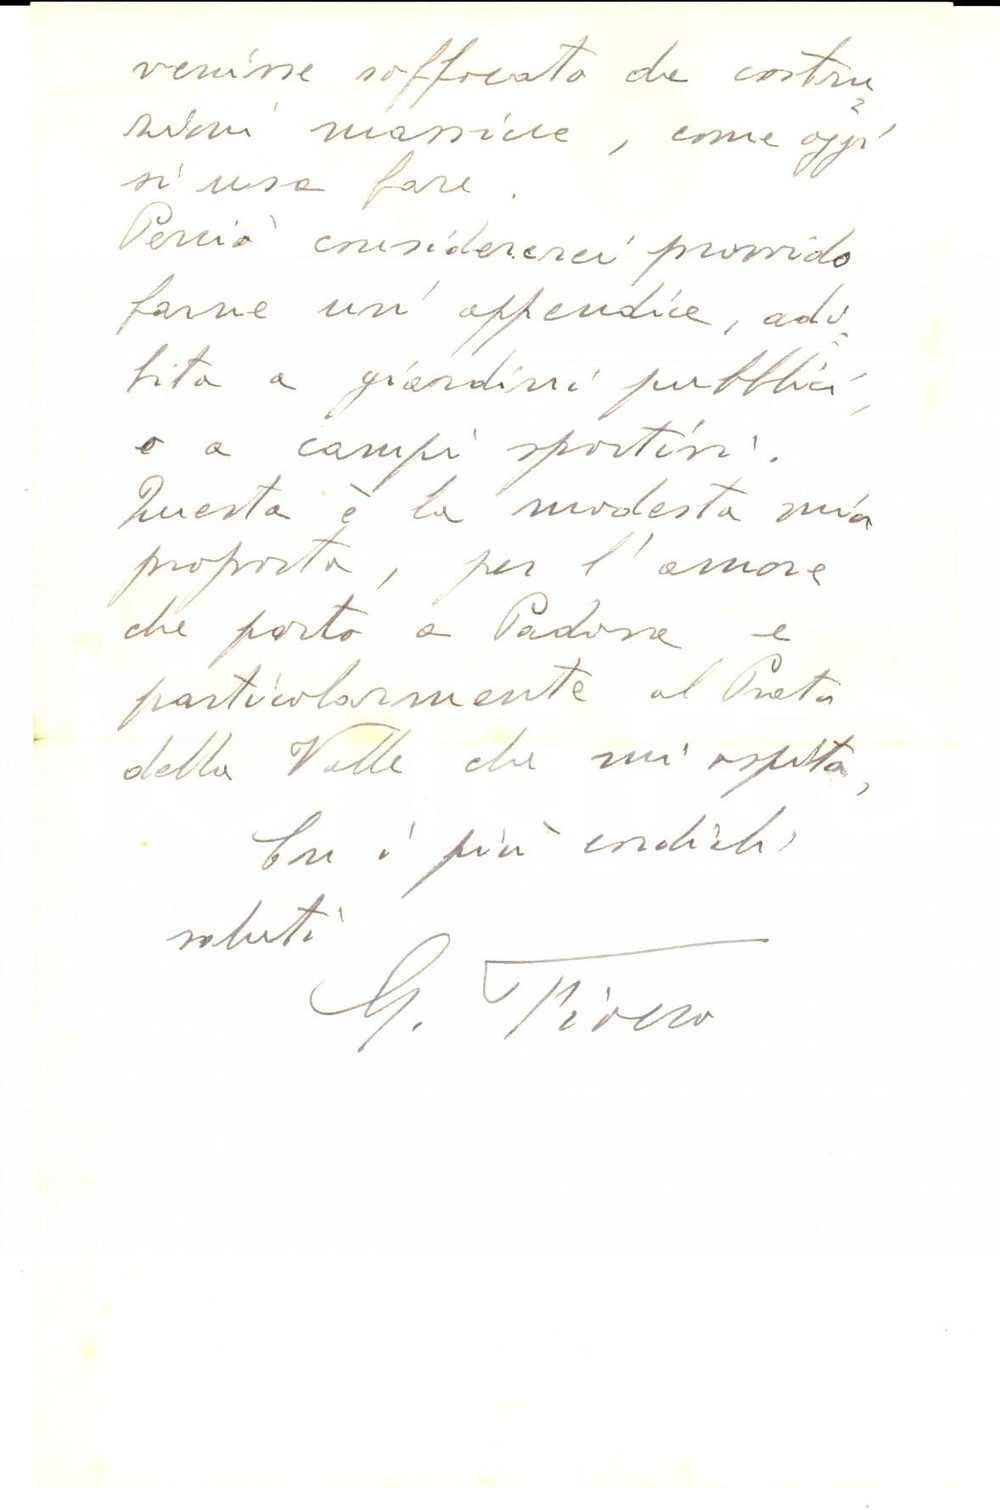 venisse soffocato da costru
zioni massicce, come oggi
si usa fare.
Perciò considererei provvido
farne un'appendice, adi-
bita a giardini pubblici,
o a campi sportivi.
Questa è la modesta mia
proposta, per l'amore
che porto a Padova e
particolarmente al Prato
della Valle che mi ospita,
Con i più cordiali
saluti
G.